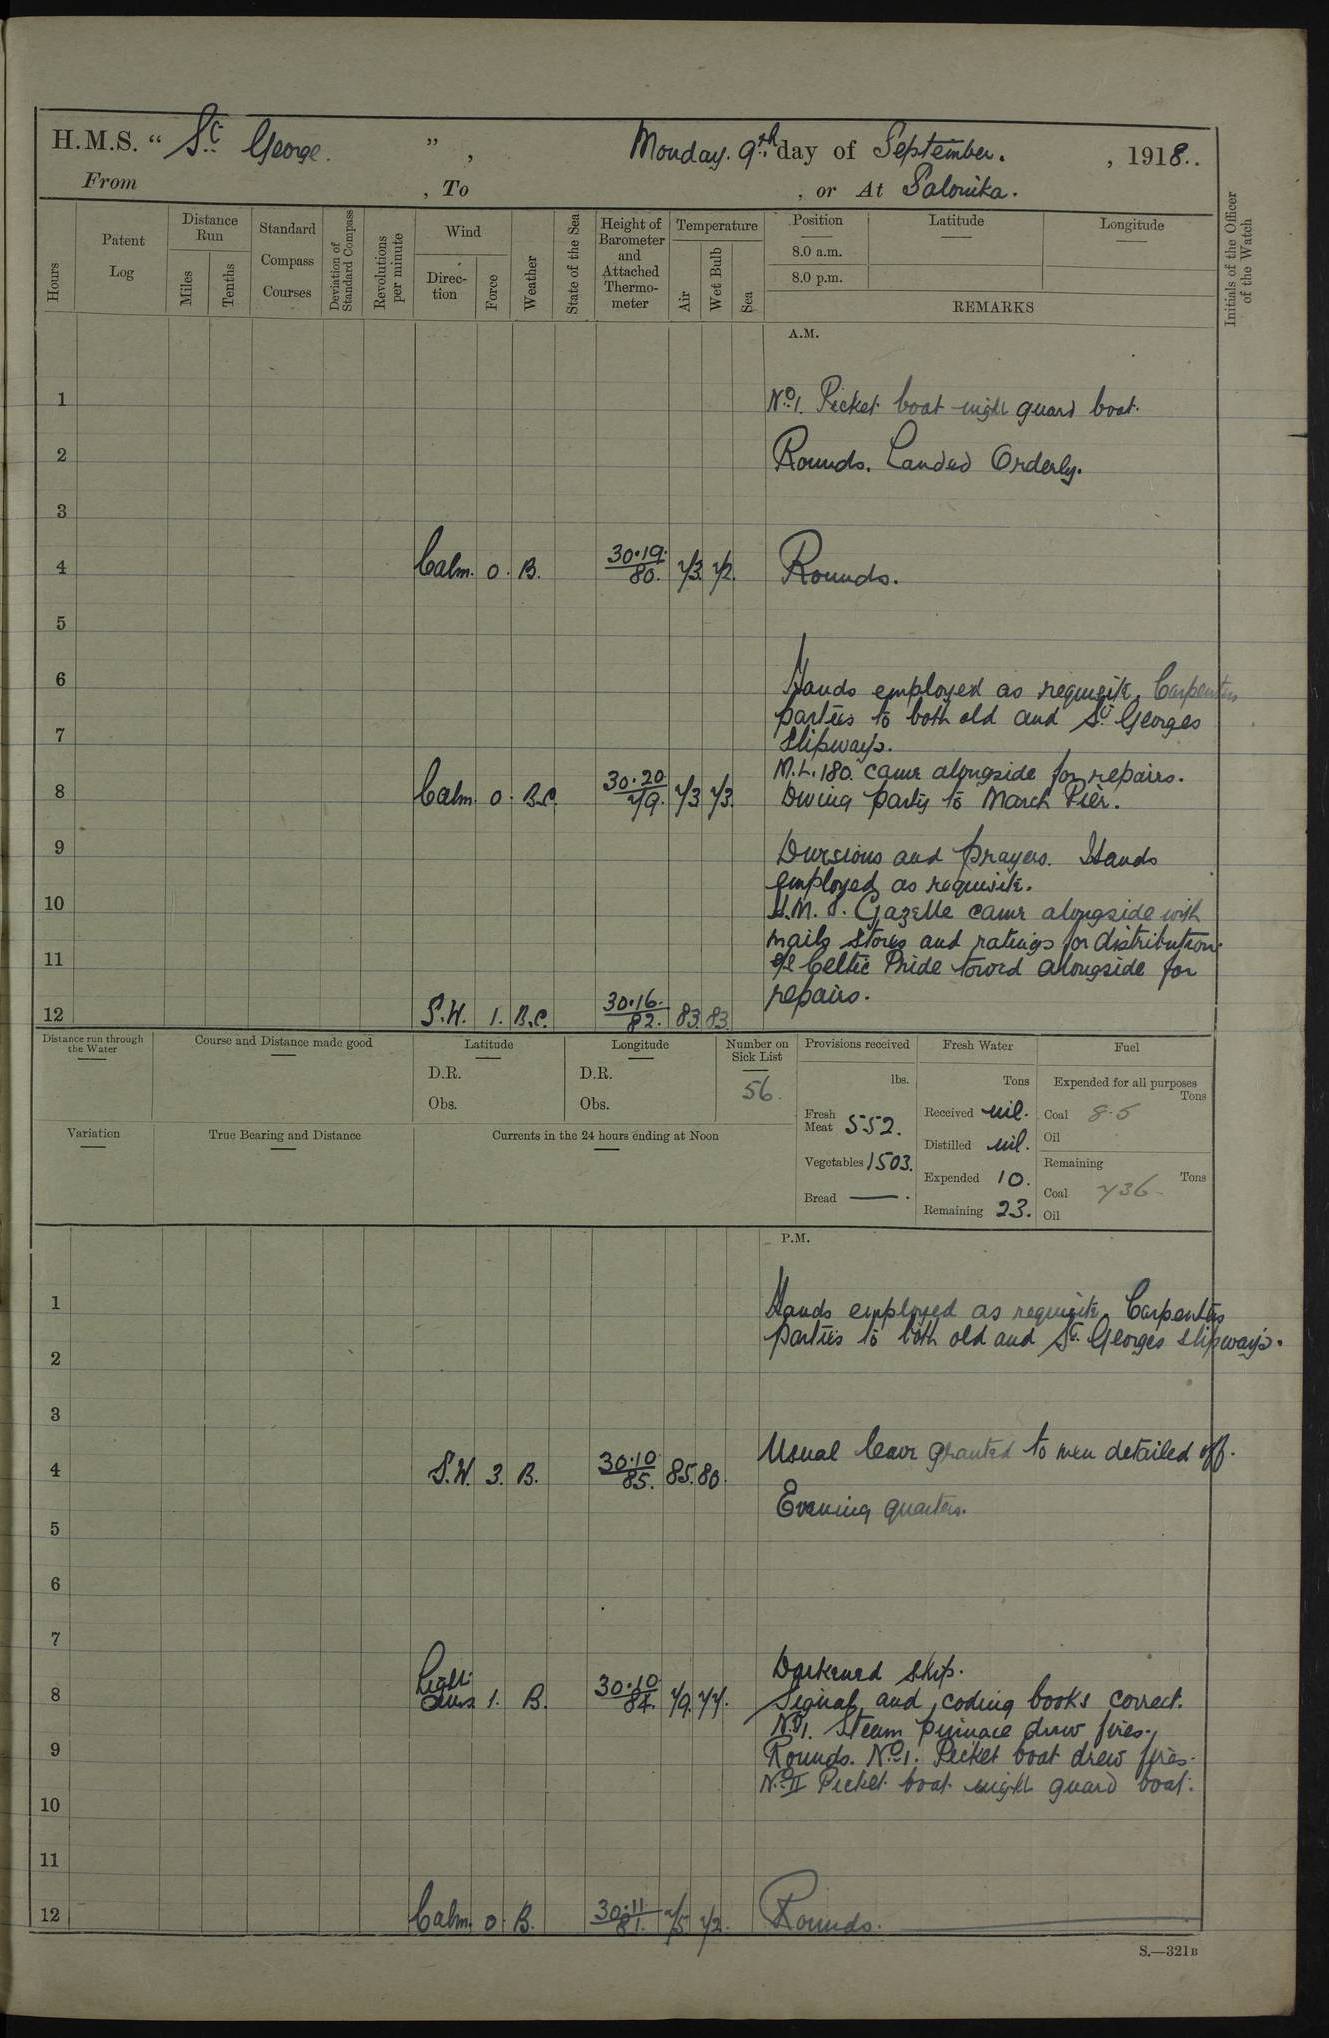 H.M.S. “ St. George. ” , Monday. 9th. day of September. , 1918..
From , To , or At Salonika.
Hours
Patent Log
Distance Run
Miles
Tenths
Standard Compass Courses
Deviation of Standard Compass
Revolutions per minute
Wind
Direction
Force
Weather
State of the Sea
Height of Barometer and Attached Thermometer
Temperature
Air
Wet Bulb
Sea
Position Latitude Longitude
8.0 a.m.
8.0 p.m.
REMARKS
Initials of the Officer of the Watch
A.M.
1 No. 1. Picket boat night guard boat.
2 Rounds. Landed Orderly.
3
4 Calm. 0. B. 30.19. 80. 73. 72. Rounds.
5
6 Hands employed as requisite. Carpenters
parties to both old and St. Georges
7 slipways.
M.L. 180. came alongside for repairs.
8 Calm. 0. B.C. 30.20 79. 73 73. Diving party to March Pier.
9 Divisions and prayers. Hands
employed as requisite.
10 H.M.S. Gazelle came alongside with
mails stores and ratings for distribution.
11 Celtic Pride towed alongside for
repairs.
12 S.W. 1. B.C. 30.16. 82. 83. 83.
Distance run through the Water
Course and Distance made good
Latitude
D.R.
Obs.
Longitude
D.R.
Obs.
Number on Sick List
56.
Provisions received
lbs.
Fresh Meat 552.
Vegetables 1503.
Bread —.
Fresh Water
Tons
Received nil.
Distilled nil.
Expended 10.
Remaining 23.
Fuel
Expended for all purposes
Tons
Coal 8.5
Oil
Remaining
Tons
Coal 736.
Oil
Variation
True Bearing and Distance
Currents in the 24 hours ending at Noon
P.M.
1 Hands employed as requisite. Carpenters
parties to both old and St. Georges slipways.
2
3
Usual leave granted to men detailed off.
4 S.W. 3. B. 30.10 85. 85. 80.
Evening quarters.
5
6
7
Darkened ship.
8 Light airs 1. B. 30.10 84. 79. 77. Signal and coding books correct.
No. 1. Steam pinnace drew fires.
9 Rounds. No. 1. Picket boat drew fires.
No. II Picket boat night guard boat.
10
11
12 Calm. 0. B. 30.11 81. 75 72. Rounds.
S.—321B